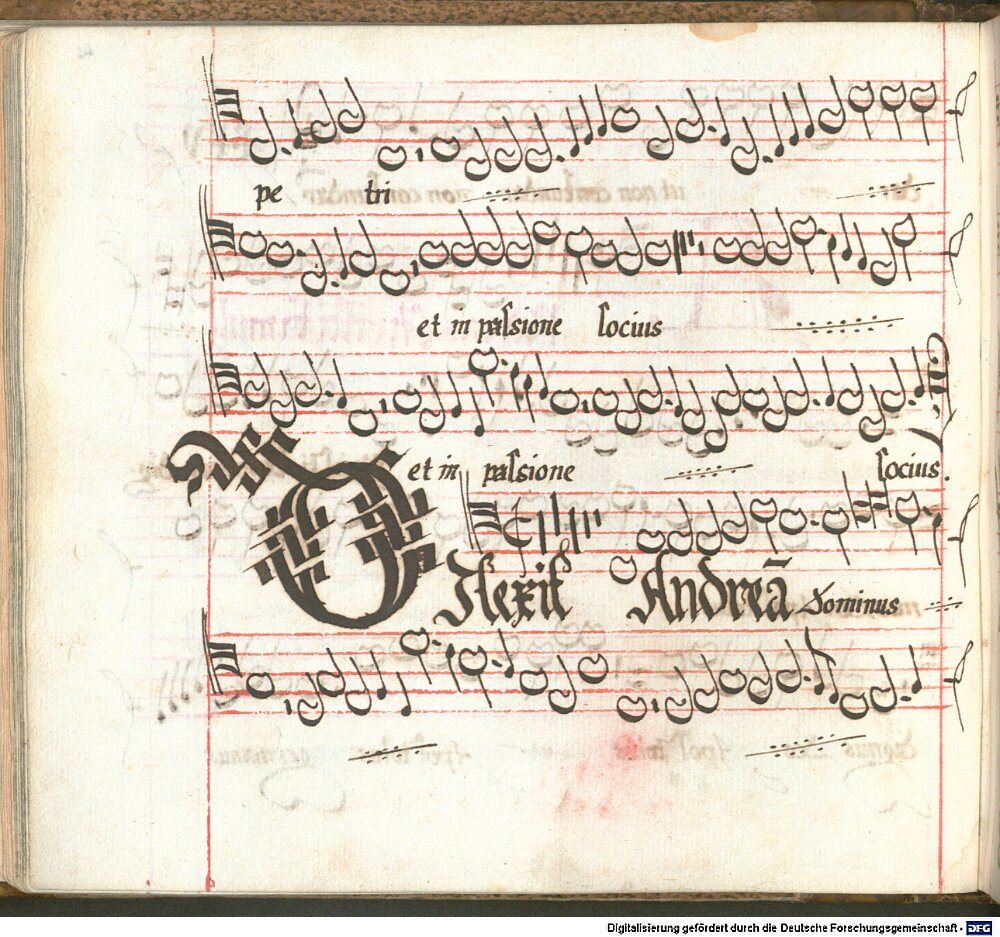 pe tri
et in passione socius
et in passione socius.
Dilexit Andreā Dominus
Digitalisierung gefördert durch die Deutsche Forschungsgemeinschaft - DFG